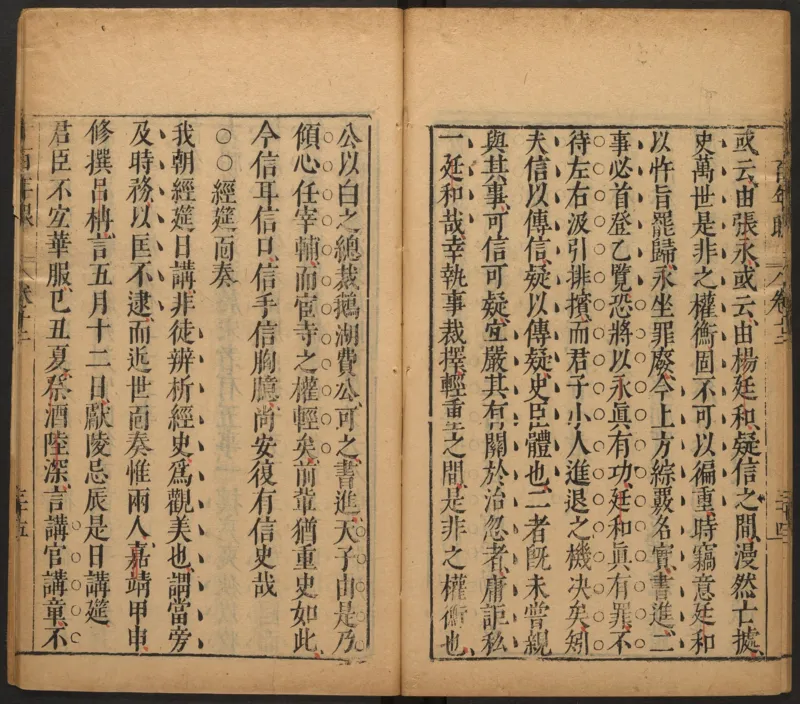 或云由張永或云由楊廷和疑信之間漫然亡據
史萬世是非之權衡固不可以徧重時竊意廷和
以忤旨罷歸永坐罪廢今上方綜覈名實書進二
事必首登乙覽恐將以永眞有功廷和眞有罪不
待左右汲引排擯而君子小人進退之機决矣矧
夫信以傳信疑以傳疑史臣體也二者旣未嘗親
與其事可信可疑宜嚴其有關於治忽者庸詎私
一廷和哉幸執事裁擇輕重之間是非之權衡也
公以白之總裁鵝湖費公可之書進天子由是乃
傾心任宰輔而宦寺之權輕矣前輩猶重史如此
今信耳信口信手信胸臆尚安復有信史哉
○○經筵面奏
我朝經筵日講非徒辨析經史爲觀美也謂當旁
及時務以匡不逮而近世面奏惟兩人嘉靖甲申
修撰呂柟言五月十二日獻陵忌辰是日講筵
君臣不宜華服己丑夏祭酒陸深言講官講章不
百年眼
卷十二
三十四
三十五